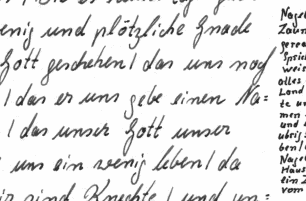 enig und plötzliche Gnade
Gott geschehen / das uns noch
/ das er uns gebe einen Na=
/ das unser Gott unser
uns ein wenig leben / da
sind Knechte / und un=
Nagel
Zaun
alles
Land
te un
men
und
ubrig
ben /
Nagel
Haus
ein Z
vom